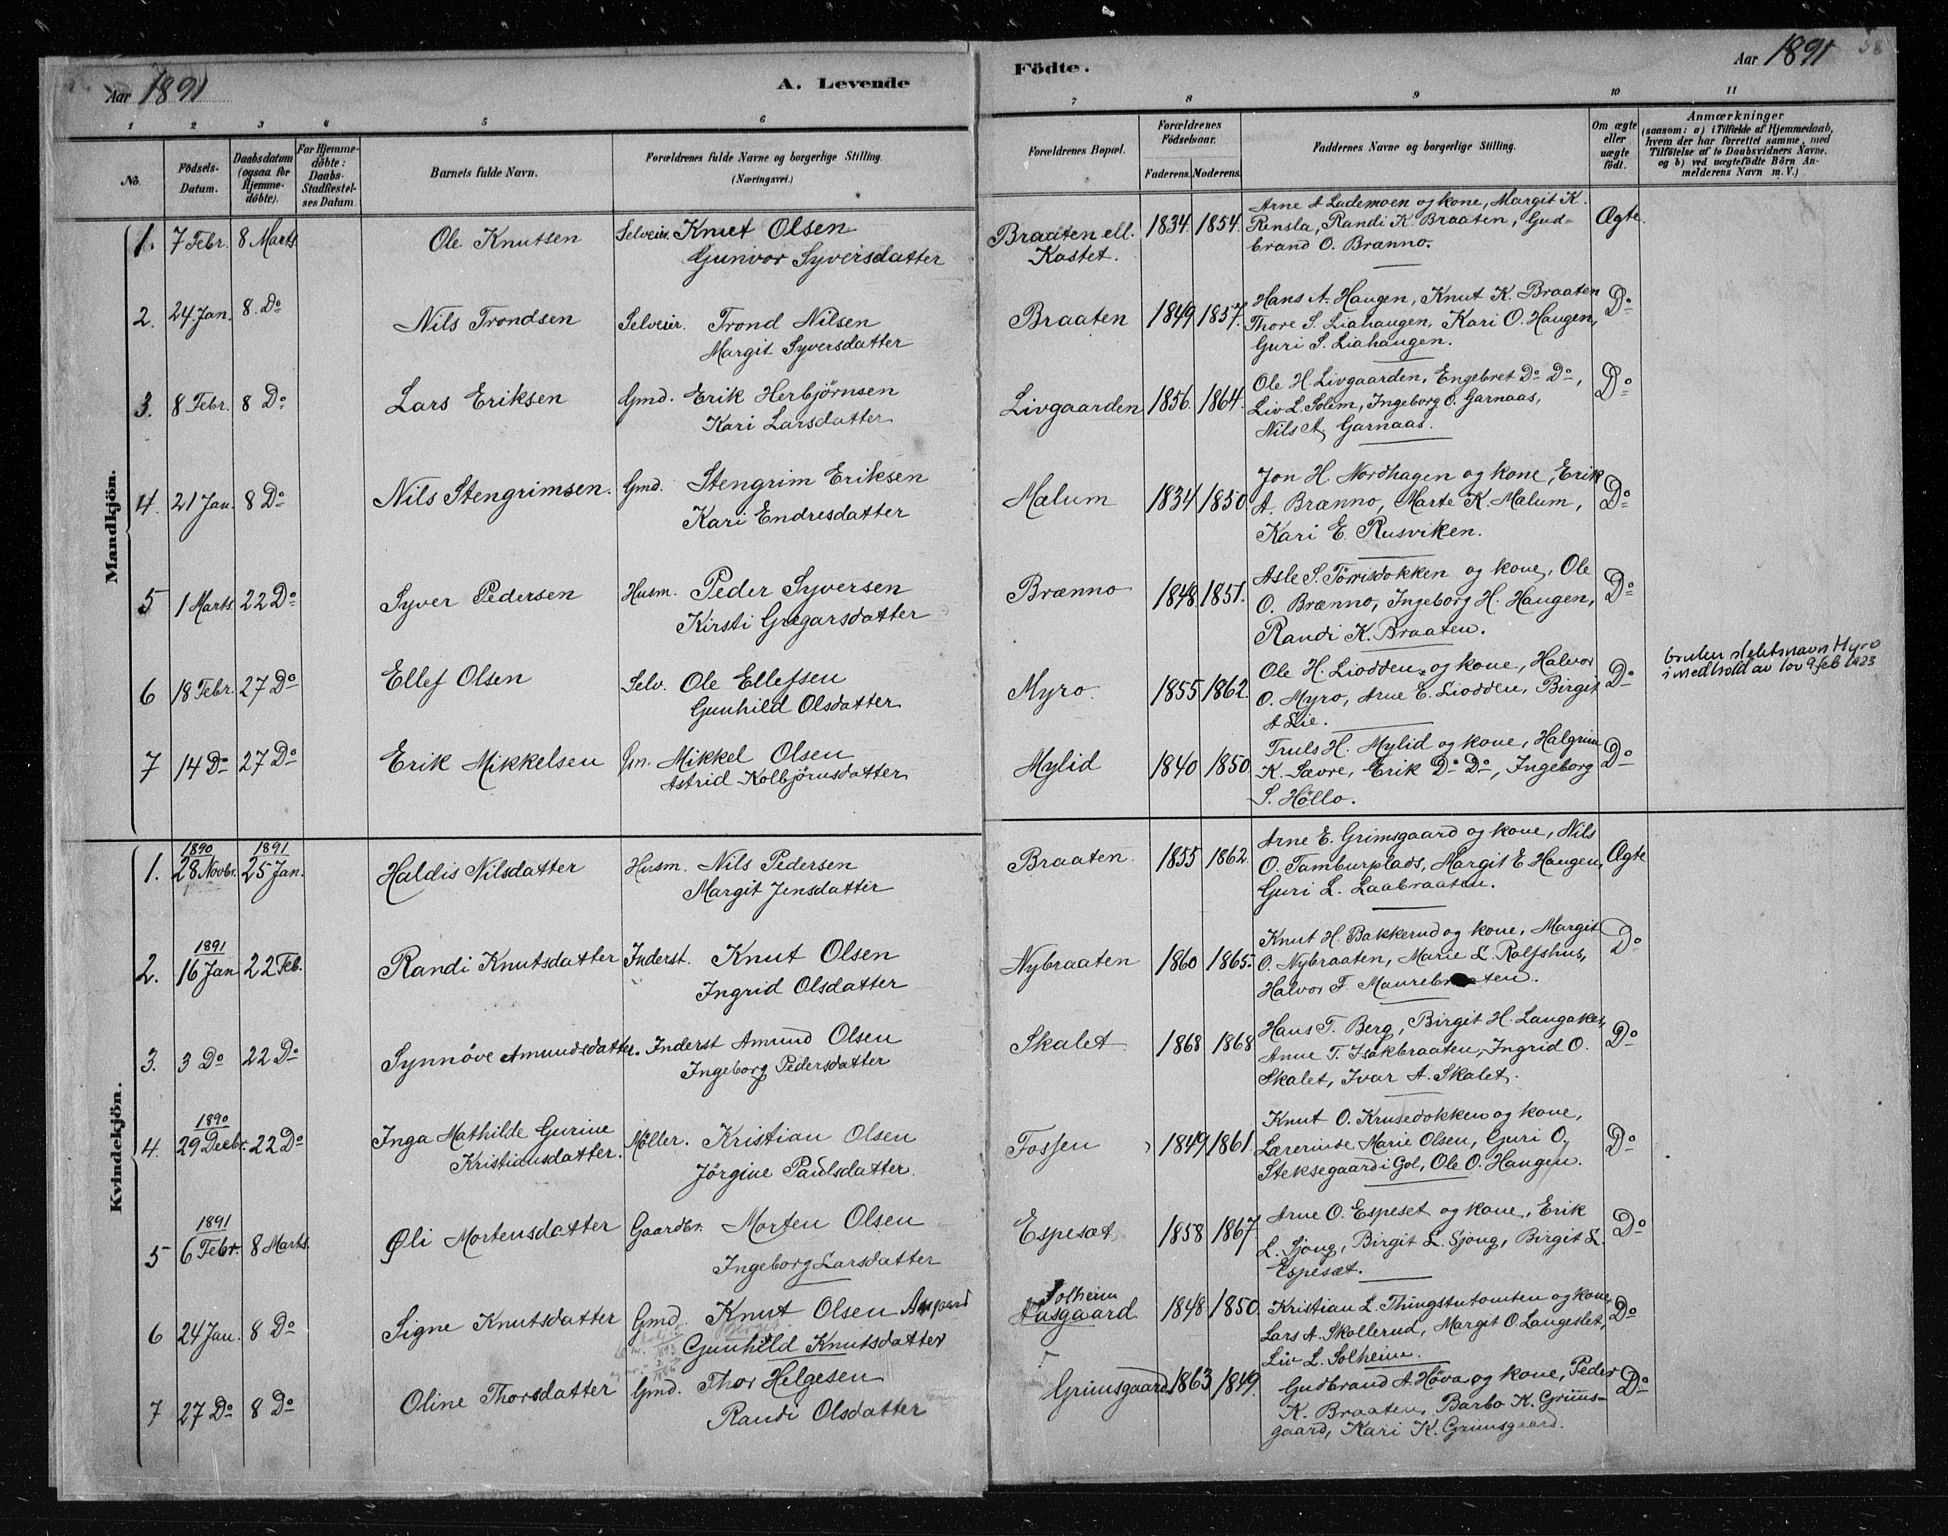 Aar 1891
A. Levende
Födte.
Aar 1891
58
1 2 3 4 5 6 7 8 9 10 11
No.
Födsels-Datum.
Daabsdatum (ogsaa for Hjemme-döbte).
For Hjemme-döbte: Daabs-Stadfæstel-ses Datum
Barnets fulde Navn.
Forældrenes fulde Navne og borgerlige Stilling.
(Næringsvei.)
Forældrenes Bopæl.
Forældrenes Födselsaar.
Faderens. Moderens.
Faddernes Navne og borgerlige Stilling.
Om ægte eller uægte födt.
Anmærkninger
(saasom: a) i Tilfælde af Hjemmedaab,
hvem der har forrettet samme, med
Tilföielse af to Daabsvidners Navne.
og b) ved uægtefödte Börn An-
melderens Navn m. V.)
Mandkjön.
1. 7 Febr. 8 Marts Ole Knutsen Selveier. Knut Olsen
Gunvor Syversdatter
Braaten ell. Kastet. 1834. 1854.
Arne A Lademoen og kone, Margit K.
Rensla, Randi K. Braaten, Gud-
brand O. Brænno.
Ægte
2. 24 Jan. 8. Do Nils Trondsen Selveier. Trond Nilsen
Margit Syversdatter
Braaten 1849 1857.
Hans A. Haugen, Knut K. Braaten
Thore S. Liahaugen, Kari O. Haugen,
Guri S. Liahaugen.
Do
3. 8 Febr. 8 Do Lars Eriksen Gmd. Erik Herbjørnsen
Kari Larsdatter
Livgaarden 1856. 1864.
Ole H. Livgaarden, Engebret Do Do,
Liv L. Solem, Ingeborg O. Garnaas,
Nils A. Garnaas.
Do
4. 21 Jan. 8 Do Nils Stengrimsen. Gmd. Stengrim Eriksen
Kari Endresdatter
Malum 1834 1850
Jon H. Nordhagen og kone, Erik
A. Brænno, Marte K. Malum,
Kari E. Rusviken.
Do
5 1 Marts. 22 Do Syver Pedersen Husm. Peder Syversen
Kirsti Gregarsdatter
Brænno 1848 1851.
Asle S. Tørrisdokken og kone, Ole
O. Brænno, Ingeborg H. Haugen,
Randi K. Braaten.
Do
6 18 Febr. 27 Do Ellef Olsen Selv. Ole Ellefsen
Gunhild Olsdatter
Myro 1855 1862.
Ole H. Liodden og kone, Halvor
O. Myro, Arne E. Liodden, Birgit
A Lie.
Do
bruker slektsnavn Myro
i medhold av lov 9 feb 1923
7 14 Do 27 Do Erik Mikkelsen Gm. Mikkel Olsen
Astrid Kolbjörnsdatter
Mylid 1840 1850
Truls H. Mylid og kone, Halgrim
K. Sævre, Erik Do Do, Ingeborg
S. Höllo.
Do
Kvindekjön.
1. 1890 28 Novbr. 1891 25 Jan. Haldis Nilsdatter Husm. Nils Pedersen
Margit Jensdatter
Braaten 1855 1862.
Arne E. Grimsgaard og kone, Nils
O. Tamburplads, Margit E Haugen,
Guri L. Laabraaten.
Ægte
2. 1891 16 Jan 22 Feb. Randi Knutsdatter Inderst. Knut Olsen
Ingrid Olsdatter
Nybraaten 1860 1865.
Knut H. Bakkerud og kone, Margit
O. Nybraaten, Marie L. Rolfshus,
Halvor T.
Do
3. 3 Do 22 Do Synnöve Amundsdatter. Inderst Amund Olsen
Ingeborg Pedersdatter
Skalet 1868 1868
Hans T. Berg, Birgit H. Langaker,
Anne T. Isakbraaten, Ingrid O.
Skalet, Ivar A. Skalet.
Do
4. 1890 29 Decbr. 22 Do Inga Mathilde Gurine
Kristiansdatter. Møller. Kristian Olsen
Jörgine Paulsdatter.
Fossen 1849 1861.
Knut O. Krusedokken og kone,
Lærerinde Marie Olsen, Guri O.
Steksegaard i Gol, Ole O. Haugen.
Do
5 1891 6 Febr. 8 Marts. Øli Mortensdatter Gaardbr. Morten Olsen
Ingeborg Larsdatter
Espeset 1858 1867.
Arne O. Espeset og kone, Erik
L. Sjong, Birgit L. Sjong, Birgit L.
Espesæt.
Do
6 24 Jan. 8 Do Signe Knutsdatter Gmd. Knut Olsen Aasgaard
Gunhild Knutsdatter
Solheim
Aasgaard 1848 1850.
Kristian L. Thingstutomten og kone,
Lars A. Skollerud, Margit O. Langeslet,
Liv L. Solheim.
Do
7 27 Do 8 Do Oline Thorsdatter Gmd. Thor Helgesen
Randi Olsdatter
Grimsgaard 1863 1849.
Gudbrand A. Høva og kone, Peder
K. Braaten, Barbo K. Grims-
gaard, Kari K. Grimsgaard.
Do